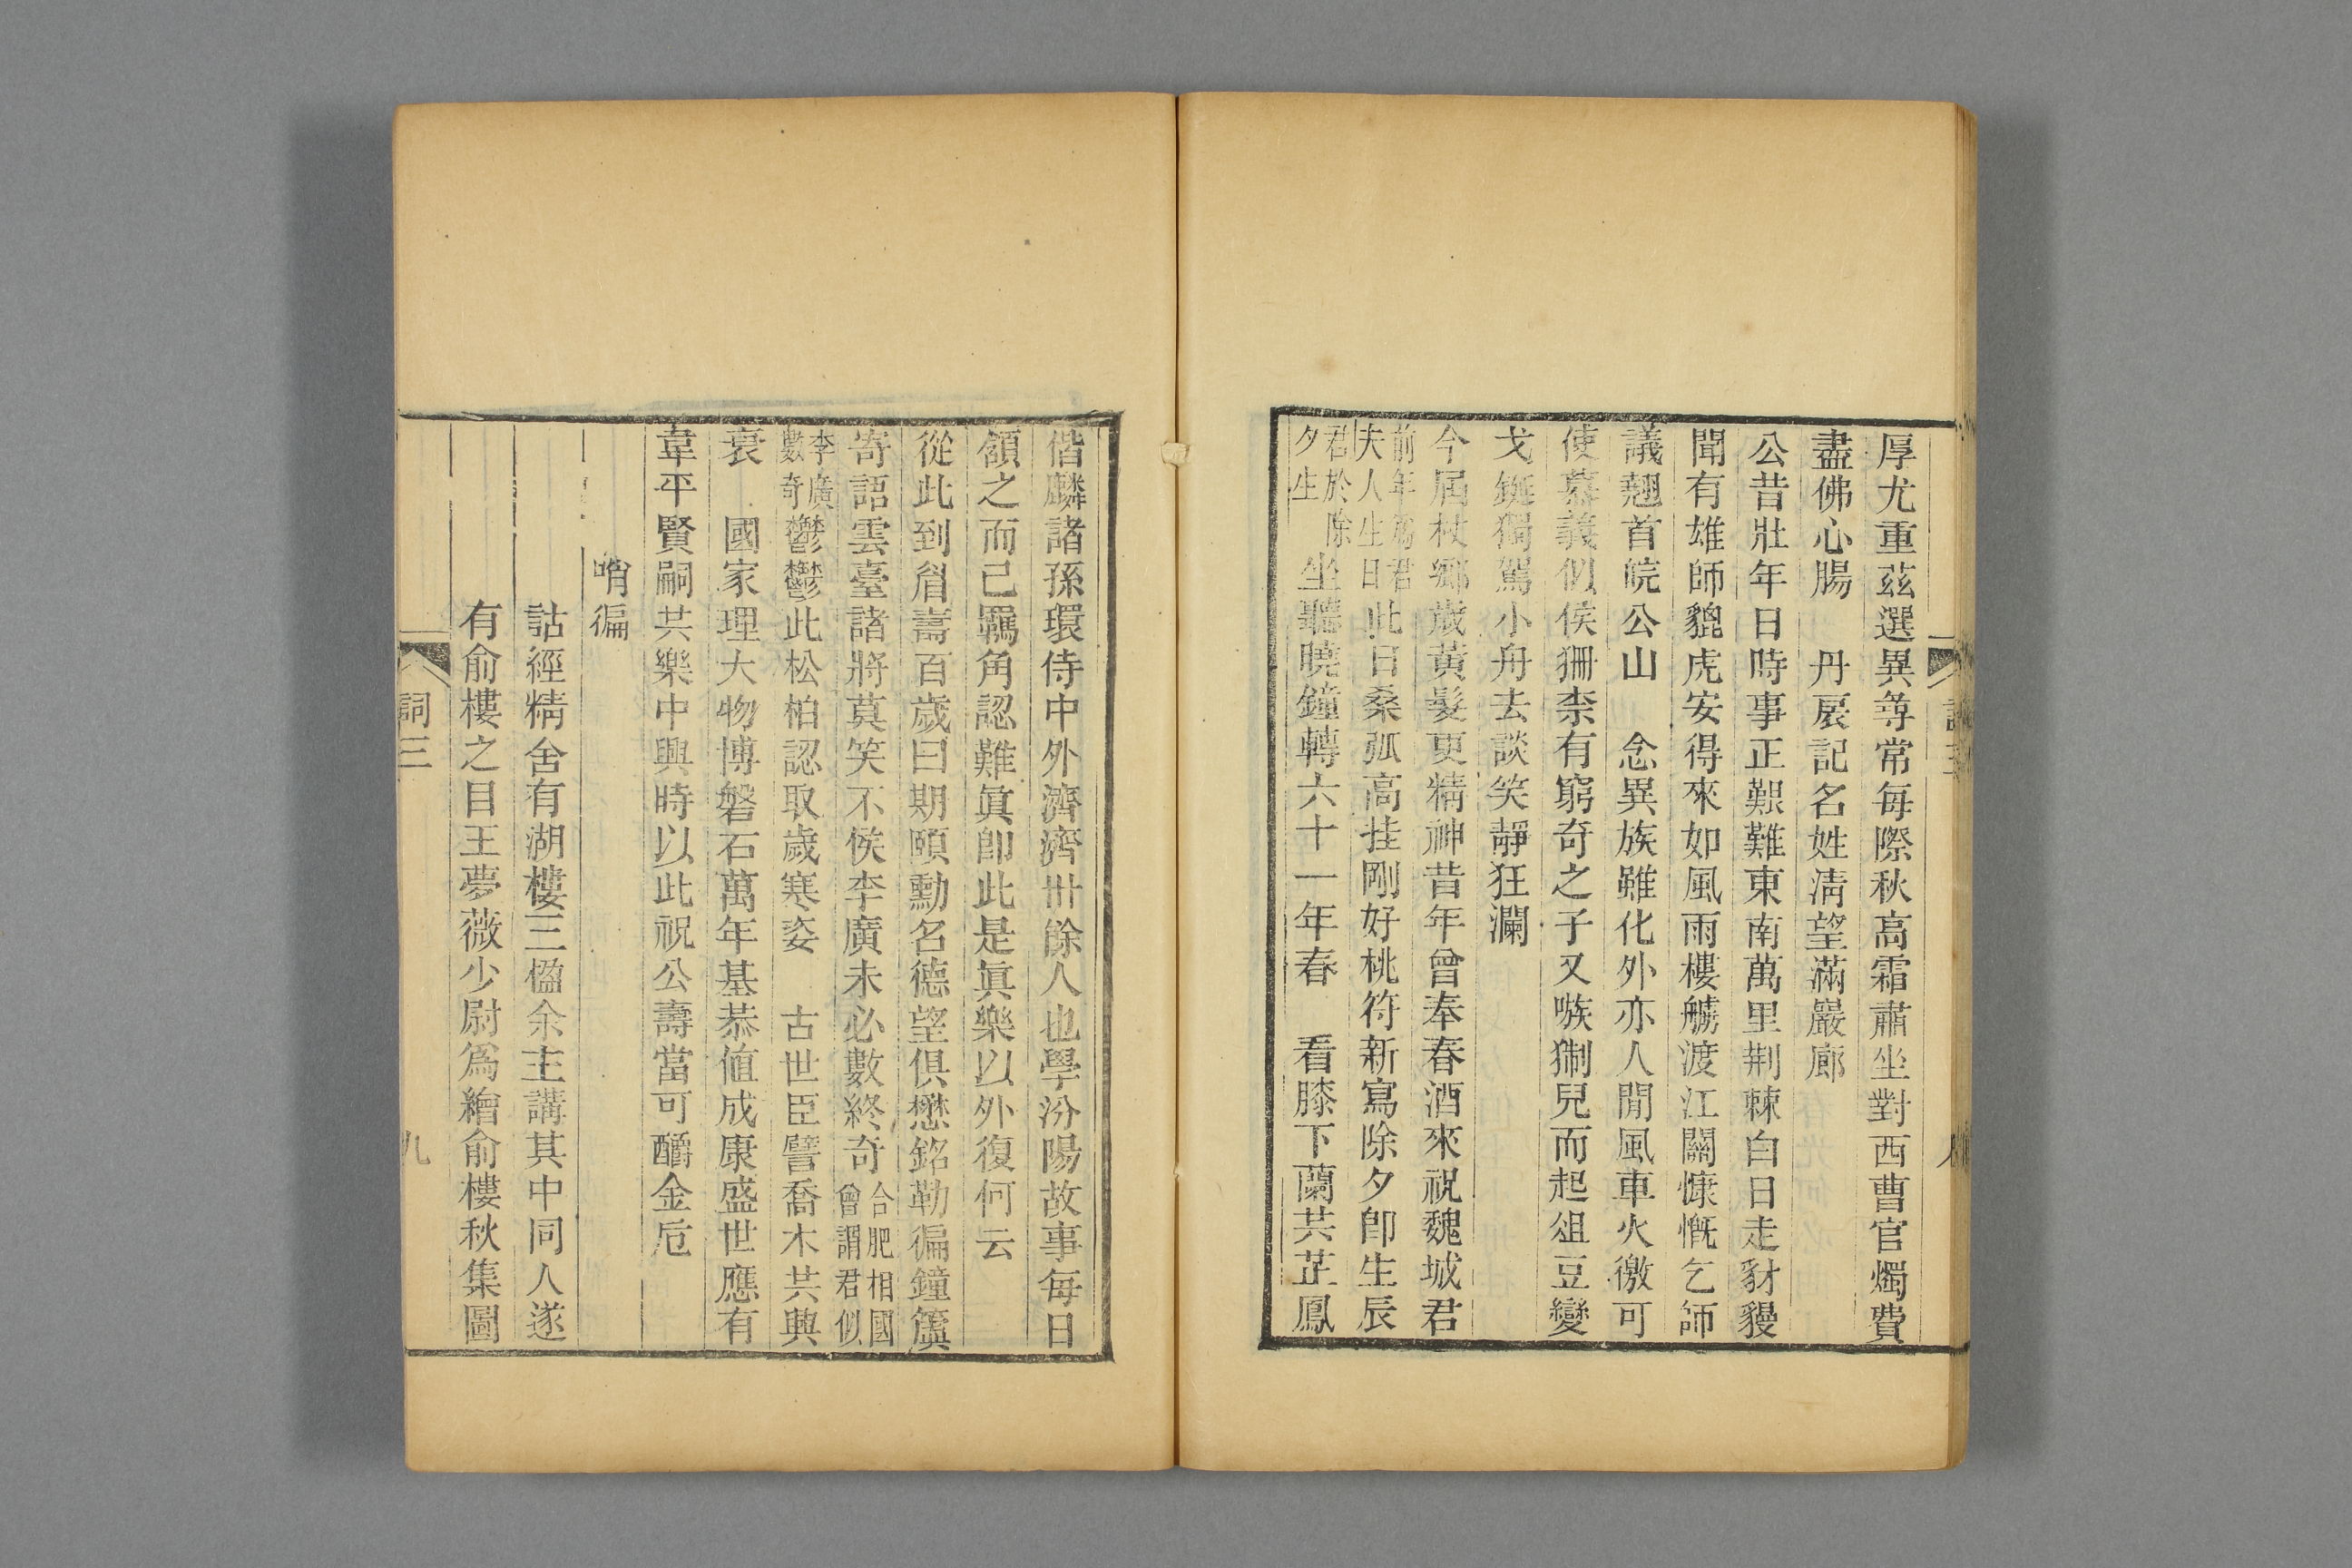 厚尤重茲選異等常每際秋高霜肅坐對西曹官燭費
盡佛心腸　丹扆記名姓淸望滿巖廊
公昔壯年日時事正艱難東南萬里荆棘白日走豺貗
聞有雄師貔虎安得來如風雨樓艣渡江關慷慨乞師
議翹首皖公山　念異族雖化外亦人閒風車火徼可
使慕義似侯狦柰有窮奇之子又嗾猘兒而起俎豆變
戈鋋獨駕小舟去談笑靜狂瀾
今屆杖鄉歲黃髮更精神昔年曾奉春酒來祝魏城君
前年爲君
夫人生日
此日桑弧高挂剛好桃符新寫除夕卽生辰
君於除
夕生
坐聽曉鐘轉六十一年春　看膝下蘭共芷鳳
偕麟諸孫環侍中外濟濟卅餘人也學汾陽故事每日
頷之而已羈角認難眞卽此是眞樂以外復何云
從此到眉壽百歲曰期頤勳名德望俱懋銘勒徧鐘簴
寄語雲臺諸將莫笑不侯李廣未必數終奇
合肥相國
曾謂君似
李廣
數奇
鬱鬱此松柏認取歲寒姿　古世臣譬喬木共興
衰　國家理大物博磐石萬年基恭値成康盛世應有
韋平賢嗣共樂中興時以此祝公壽當可釂金卮
哨徧
詁經精舍有湖樓三楹余主講其中同人遂
有俞樓之目王夢薇少尉爲繪俞樓秋集圖
詞三
九